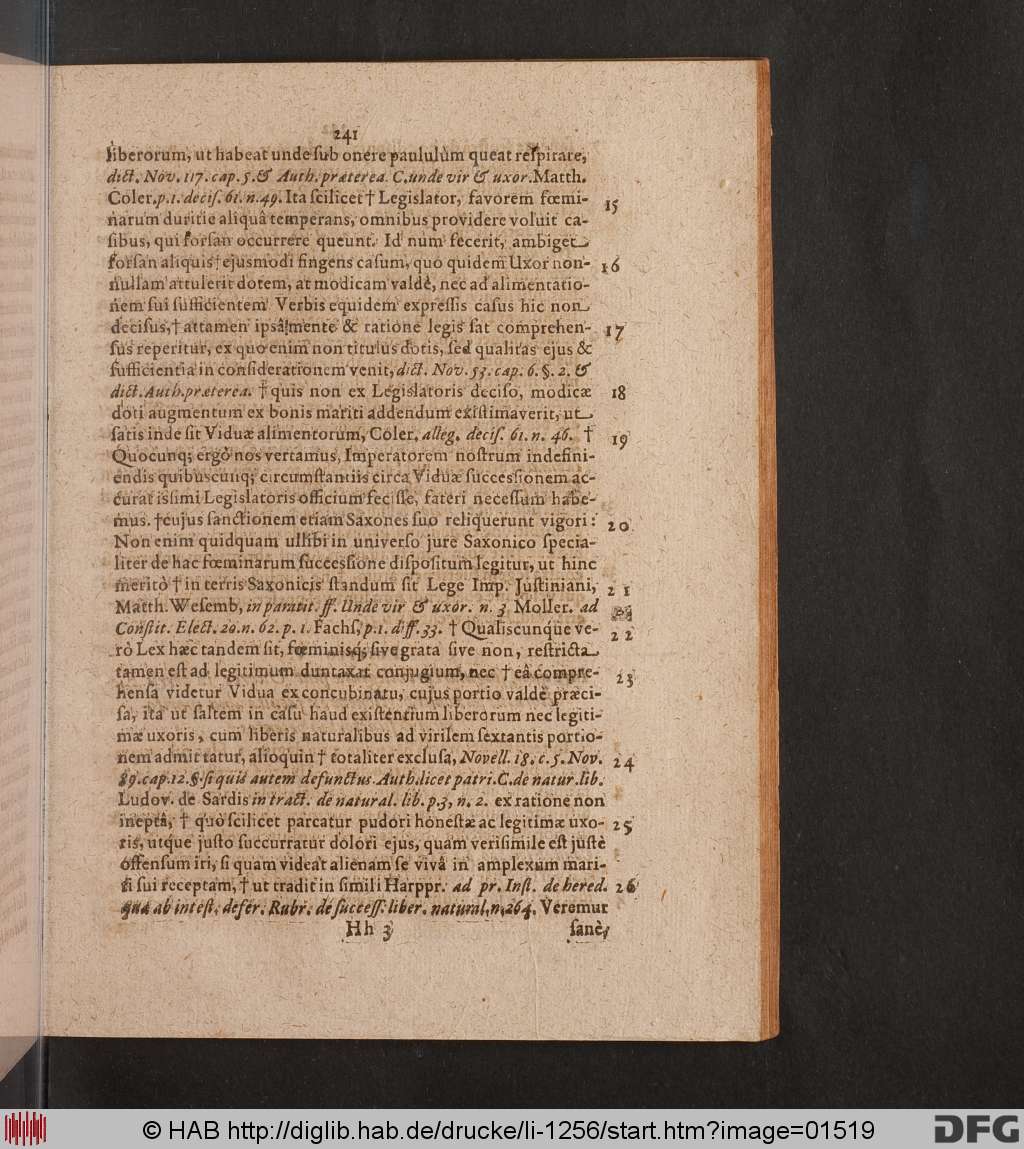 241
liberorum, ut habeat unde sub onere paululùm queat respirare,
dict. Nov. 117. cap. 5. & Auth. præterea. C. unde vir & uxor. Matth.
Coler. p. 1. decis. 61. n. 49. Ita scilicet † Legislator, favorem fœmi- 15
narum duritie aliquâ temperans, omnibus providere voluit ca-
sibus, qui forsan occurrere queunt. Id num fecerit, ambiget
forsan aliquis † ejusmodi fingens casum, quo quidem Uxor non- 16
nullam attulerit dotem, at modicam valdè, nec ad alimentatio-
nem sui sufficientem Verbis equidem expressis casus hic non
decisus, † attamen ipsâ mente & ratione legis sat comprehen- 17
sus reperitur, ex quo enim non titulus dotis, sed qualitas ejus &
sufficientia in considerationem venit, dict. Nov. 53. cap. 6. §. 2. &
dict. Auth. præterea. † quis non ex Legislatoris deciso, modicæ 18
doti augmentum ex bonis mariti addendum existimaverit, ut
satis inde sit Viduæ alimentorum, Coler. alleg. decis. 61. n. 46. † 19
Quocunq; ergò nos vertamus, Imperatorem nostrum indefini-
endis quibuscunq; circumstantiis circa Viduæ successionem ac-
curatissimi Legislatoris officium fecisse, fateri necessum habe-
mus. † cujus sanctionem etiam Saxones suo reliquerunt vigori: 20
Non enim quidquam ullibi in universo jure Saxonico specia-
liter de hac fœminarum successione dispositum legitur, ut hinc
meritò † in terris Saxonicis standum sit Lege Imp. Justiniani, 21
Matth. Wesemb, in paratit. ff. Unde vir & uxor. n. 3 Moller. ad
Constit. Elect. 20. n. 62. p. 1. Fachs, p. 1. diff. 33. † Qualiscunque ve- 22
rò Lex hæc tandem sit, fœminisq; sive grata sive non, restricta
tamen est ad legitimum duntaxat conjugium, nec † eâ compre- 23
hensa videtur Vidua ex concubinatu, cujus portio valdè præci-
sa, ita ut saltem in casu haud existentium liberorum nec legiti-
mæ uxoris, cum liberis naturalibus ad virilem sextantis portio-
nem admittatur, alioquin † totaliter exclusa, Novell. 18. c. 5. Nov. 24
89. cap. 12. §. si quis autem defunctus. Auth. licet patri. C. de natur. lib.
Ludov. de Sardis in tract. de natural. lib. p. 3, n. 2. ex ratione non
inepta, † quò scilicet parcatur pudori honestæ ac legitimæ uxo- 25
ris, utque justo succurratur dolori ejus, quam verisimile est justè
offensum iri, si quam videat alienam se vivâ in amplexum mari-
ti sui receptam, † ut tradit in simili Harppr. ad pr. Inst. de hered. 26
quæ ab intest. defer. Rubr. de success. liber. natural. n. 264. Veremur
Hh 3 sanè,
© HAB http://diglib.hab.de/drucke/li-1256/start.htm?image=01519
DFG